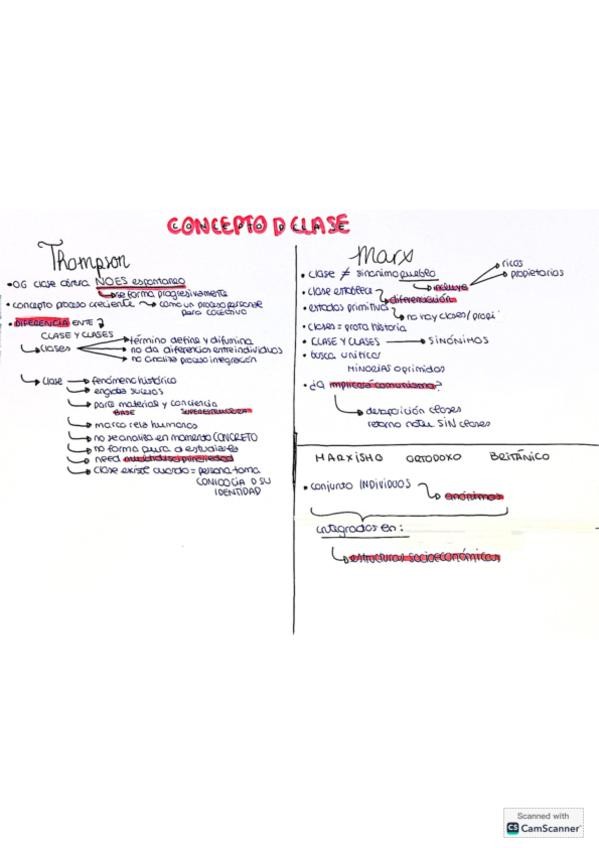 CONCEPTO D CLASE
Thompson
• OG clase obrera NO ES espontaneo
se forma progresivamente
• concepto proceso creciente → como un proceso personal
para colectivo
• DIFERENCIA ENTE
CLASE Y CLASES
clases → término define y difumina
→ no da diferencias entre individuos
→ no analiza proceso integración
clase → fenómeno histórico
→ engloba sucesos
→ parte material y conciencia
BASE SUPERESTRUCTURA
→ marco rela humanas
→ no se analiza en momento CONCRETO
→ no forma pura d estudiarles
→ need
→ clase existe cuando = persona toma
CONCIENCIA D SU
IDENTIDAD
Marx
• clase ≠ sinónimo pueblo
incluye → ricos
→ propietarios
• clase establece
diferenciación
• estados primitivos
no hay clases / propi
• clases = proto historia
• CLASE Y CLASES → SINÓNIMOS
• busca unificar
MINORIAS oprimidas
• ¿Q implicará comunismo?
desaparición clases
retorno natu SIN clases
MARXISMO ORTODOXO BRITÁNICO
• conjunto INDIVIDUOS
anónimos
integrados en:
estructuras socioeconómicas
Scanned with
CS CamScanner